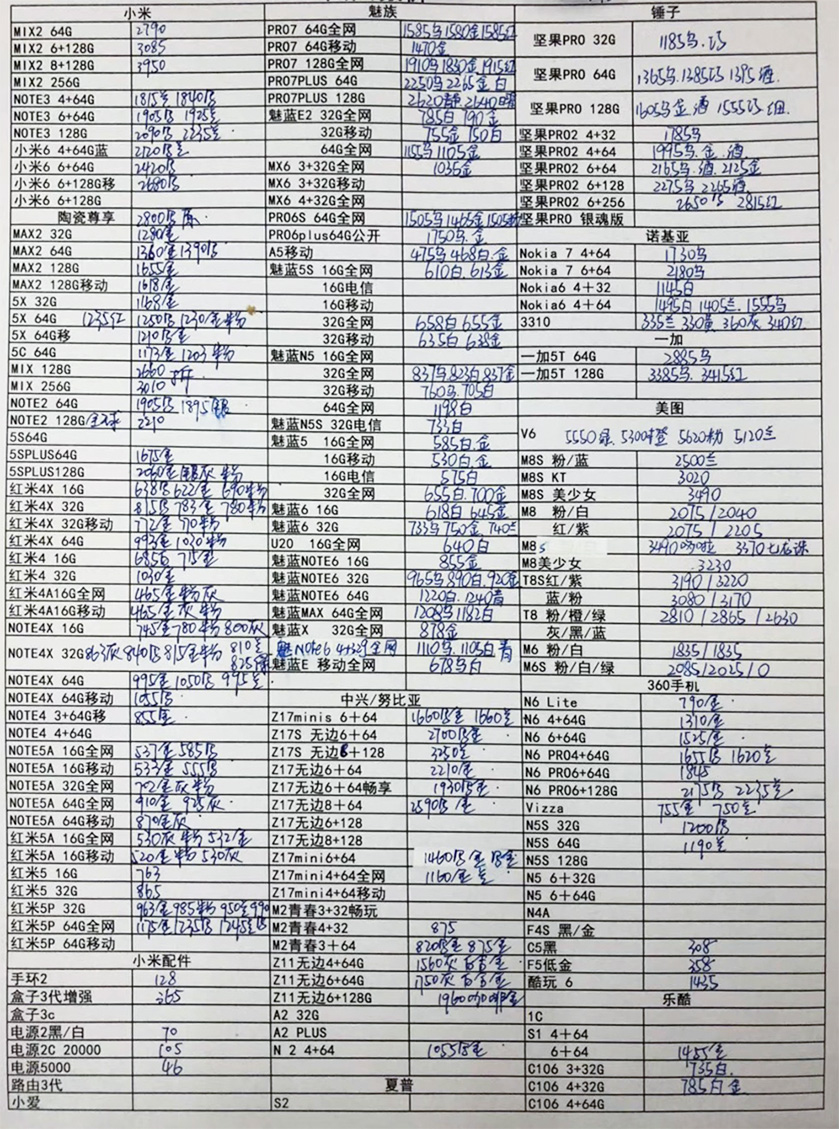 小米
MIX2 64G 2790
MIX2 6+128G 3085
MIX2 8+128G 3950
MIX2 256G
NOTE3 4+64G 1815 1840
NOTE3 6+64G 1905 1925
NOTE3 128G 2090 2235
小米6 4+64G蓝 2120
小米6 6+64G 2420
小米6 6+128G移 2680
小米6 6+128G
陶瓷尊享 2800
MAX2 32G 1280金
MAX2 64G 1360金 1390
MAX2 128G 1655金
MAX2 128G移动 1618金
5X 32G 1168金
5X 64G 1235红 1250 1230金粉
5X 64G移 1210
5C 64G 1173金 1203粉
MIX 128G 2660
MIX 256G 3010
NOTE2 64G 1905 1895银
NOTE2 128G 2210
5S64G
5SPLUS64G 1675金
5SPLUS128G 2040金银灰粉
红米4X 16G 638 622金 690粉
红米4X 32G 815 783金 780粉
红米4X 32G移动 772金 790粉
红米4X 64G 993金 1020粉
红米4 16G 685 715金
红米4 32G 1030金
红米4A16G全网 465金粉灰
红米4A16G移动 465金灰粉
NOTE4X 16G 745金 780粉 800灰
NOTE4X 32G 863灰 840 815金粉 810 825绿
NOTE4X 64G 995金 1050 995
NOTE4X 64G移动 1055
NOTE4 3+64G移 855金
NOTE4 4+64G
NOTE5A 16G全网 537金 585
NOTE5A 16G移动 533金 555
NOTE5A 32G全网 702金灰粉
NOTE5A 64G全网 910金 925灰
NOTE5A 64G移动 870金灰
红米5A 16G全网 530灰粉 532金
红米5A 16G移动 520金粉 530灰
红米5 16G 763
红米5 32G 865
红米5P 32G 963金 985粉 950 990
红米5P 64G全网 1175金 1235 1245
红米5P 64G移动
小米配件
手环2 128
盒子3代增强 365
盒子3c
电源2黑/白 70
电源2C 20000 105
电源5000 46
路由3代
小爱
魅族
PRO7 64G全网 1585乌 1580金 1585红
PRO7 64G移动 1470金
PRO7 128G全网 1910乌 1830金 1915红
PRO7PLUS 64G 2250乌 2265金.白
PRO7PLUS 128G 2620 2640
魅蓝E2 32G全网 785白 790金
32G移动 755金 750白
64G全网 1155乌 1105金
MX6 3+32G全网 1035金
MX6 3+32G移动
MX6 4+32G全网
PRO6S 64G全网 1505乌 1465金 1505粉
PRO6plus64G公开 1750乌.金
A5移动 475乌 468白.金
魅蓝5S 16G全网 610白.613金
16G电信
16G移动
32G全网 658白 655金
32G移动 635白 638金
魅蓝N5 16G全网
32G全网 837乌 823白 837金
32G移动 760乌.705白
64G全网 1198白
魅蓝N5S 32G电信 733白
魅蓝5 16G全网 585白.金
16G移动 530白.金
16G电信 575白
32G全网 655白.700金
魅蓝6 16G 618白 645金
魅蓝6 32G 733乌 750金.740兰
U20 16G全网 640白
魅蓝NOTE6 16G 855金
魅蓝NOTE6 32G 965乌 890白.920金
魅蓝NOTE6 64G 1220白.1240
魅蓝MAX 64G全网 1208乌 1182白
魅蓝X 32G全网 878金
魅NOTE6 4+32G全网 1110乌.1105白
魅蓝E 移动全网 678乌白
中兴/努比亚
Z17minis 6+64 1660金 1660
Z17S 无边6+64 2700金
Z17S 无边6+128 3250
Z17无边6+64 2210金
Z17无边6+64畅享 1930金
Z17无边8+64 2590金
Z17无边6+128
Z17无边8+128
Z17mini6+64 1460金
Z17mini4+64全网 1160金
Z17mini4+64移动
M2青春3+32畅玩
M2青春4+32 875
M2青春3+64 820金 875金
Z11无边4+64G 1560灰
Z11无边6+64G 1750灰
Z11无边6+128G 1960咖啡金
A2 32G
A2 PLUS
N 2 4+64 1055金
夏普
S2
锤子
坚果PRO 32G 1185乌.巧
坚果PRO 64G 1365乌.1385巧 1395酒.
坚果PRO 128G 1605乌金.酒 1555巧.红.
坚果PRO2 4+32 1785乌
坚果PRO2 4+64 1995乌.金.酒
坚果PRO2 6+64 2165乌.酒.2125金
坚果PRO2 6+128 2275乌 2265酒
坚果PRO2 6+256 2650乌 2815红
坚果PRO 银魂版
诺基亚
Nokia 7 4+64 1730乌
Nokia 7 6+64 2180乌
Nokia6 4+32 1145白
Nokia6 4+64 1495白 1405兰.1555乌
3310 335兰 330黄 360灰 340红
一加
一加5T 64G 2885乌
一加5T 128G 3385乌.3415红
美图
V6 5550绿.5300橙 5620粉 5120兰
M8S 粉/蓝 2500兰
M8S KT 3020
M8S 美少女 3490
M8 粉/白 2075/2040
红/紫 2075/2205
M8s 3490叮当 3370七龙珠
M8美少女 3230
T8S红/紫 3190/3220
蓝/粉 3080/3170
T8 粉/橙/绿 2810/2865/2630
灰/黑/蓝
M6 粉/白 1835/1835
M6S 粉/白/绿 2085/2025/0
360手机
N6 Lite 790金
N6 4+64G 1310金
N6 6+64G 1525金
N6 PRO4+64G 1655 1620
N6 PRO6+64G 1845
N6 PRO6+128G 2175 2235
Vizza 755金 750
N5S 32G 1200
N5S 64G 1190
N5S 128G
N5 6+32G
N5 6+64G
N4A
F4S 黑/金
C5黑 308
F5低金 358
酷玩 6 1435
乐酷
1C
S1 4+64
6+64 1455金
C106 3+32G 735白
C106 4+32G 785白金
C106 4+64G